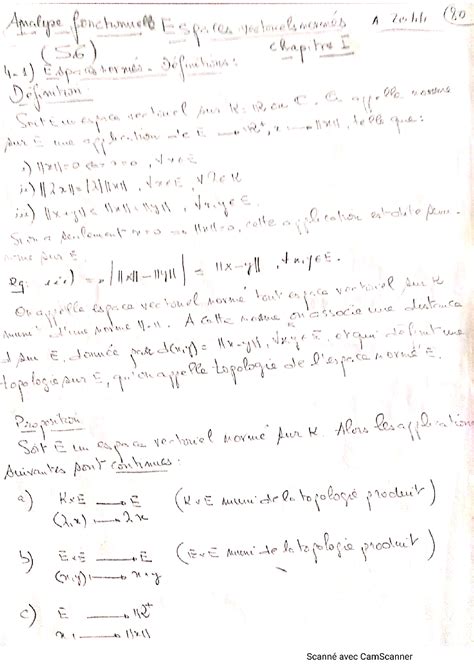 Analyse fonctionnelle Espaces vectoriels normés A. Zeklik
(S6) Chapitre I
1-1) Espaces normés - Définitions :
Définition
Soit E un espace vectoriel sur K = R ou C. On appelle norme
sur E une application de E → R⁺, x → ||x||, telle que :
i) ||x|| = 0 ⟺ x = 0, ∀x∈E
ii) ||λx|| = |λ| ||x||, ∀x∈E, ∀λ∈K
iii) ||x+y|| ≤ ||x|| + ||y||, ∀x,y∈E.
Si on a seulement x = 0 ⟹ ||x|| = 0, cette application est dite semi-
norme sur E.
Rq: iii) ⟹ | ||x|| - ||y|| | ≤ ||x-y||, ∀x,y∈E.
On appelle espace vectoriel normé tout espace vectoriel sur K
muni d'une norme ||.||. A cette norme on associe une distance
d sur E, donnée par d(x,y) = ||x-y||, ∀x,y∈E, et qui définit une
topologie sur E, qu'on appelle topologie de l'espace normé E.
Proposition
Soit E un espace vectoriel normé sur K. Alors les applications
suivantes sont continues :
a) K×E → E (K×E muni de la topologie produit)
(λ,x) → λx
b) E×E → E (E×E muni de la topologie produit)
(x,y) → x+y
c) E → R⁺
x → ||x||
Scanné avec CamScanner